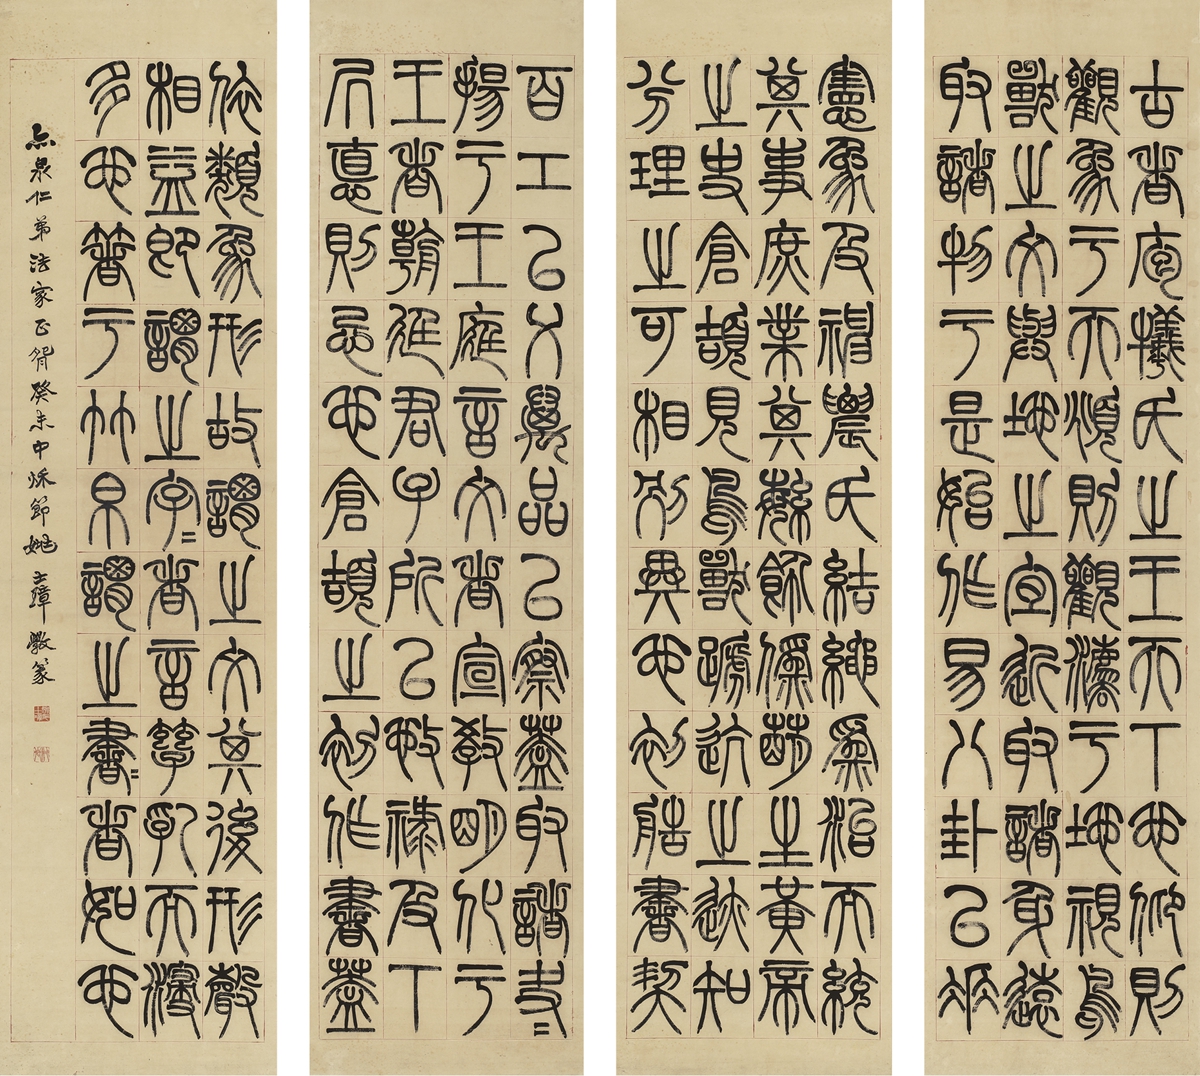 古者庖犧氏之王天下也仰則
觀象于天頫則觀灋于地視鳥
獸之文與地之宜近取諸身遠
取諸物于是始作易八卦以𠂹
憲象及神農氏結繩爲治而統
其事庶業其緐飾僞萌生黃帝
之史倉頡見鳥獸蹏迒之迹知
分理之可相別異也初造書契
百工以乂萬品以察蓋取諸夬=
揚于王庭言文者宣教明化于
王者朝廷君子所以施祿及下
居悳則忌也倉頡之初作書蓋
依類象形故謂之文其後形聲
相益即謂之字=者言孳乳而浸
多也箸于竹帛謂之書=者如也
亦泉仁弟法家正 癸未中秋節姚士璋斆篆